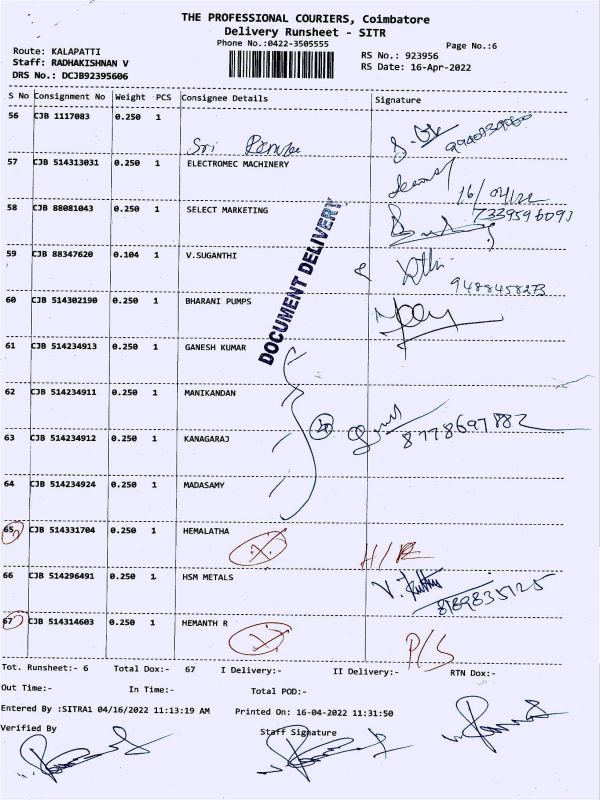 THE PROFESSIONAL COURIERS, Coimbatore
Delivery Runsheet - SITR
Phone No.:0422-3505555
Page No.:6
Route: KALAPATTI
Staff: RADHAKISHNAN V
DRS No.: DCJB92395606
RS No.: 923956
RS Date: 16-Apr-2022
S No Consignment No Weight PCS Consignee Details Signature
56 CJB 1117083 0.250 1
Sri
57 CJB 514313031 0.250 1 ELECTROMEC MACHINERY
16/04/22
58 CJB 88081043 0.250 1 SELECT MARKETING
7339596091
59 CJB 88347620 0.104 1 V.SUGANTHI
9488458273
60 CJB 514302190 0.250 1 BHARANI PUMPS
DOCUMENT DELIVERY
61 CJB 514234913 0.250 1 GANESH KUMAR
62 CJB 514234911 0.250 1 MANIKANDAN
8778697882
63 CJB 514234912 0.250 1 KANAGARAJ
64 CJB 514234924 0.250 1 MADASAMY
65 CJB 514331704 0.250 1 HEMALATHA
66 CJB 514296491 0.250 1 HSM METALS
8189835125
67 CJB 514314603 0.250 1 HEMANTH R
P/S
Tot. Runsheet:- 6 Total Dox:- 67 I Delivery:- II Delivery:- RTN Dox:-
Out Time:- In Time:- Total POD:-
Entered By :SITRA1 04/16/2022 11:13:19 AM Printed On: 16-04-2022 11:31:50
Verified By Staff Signature